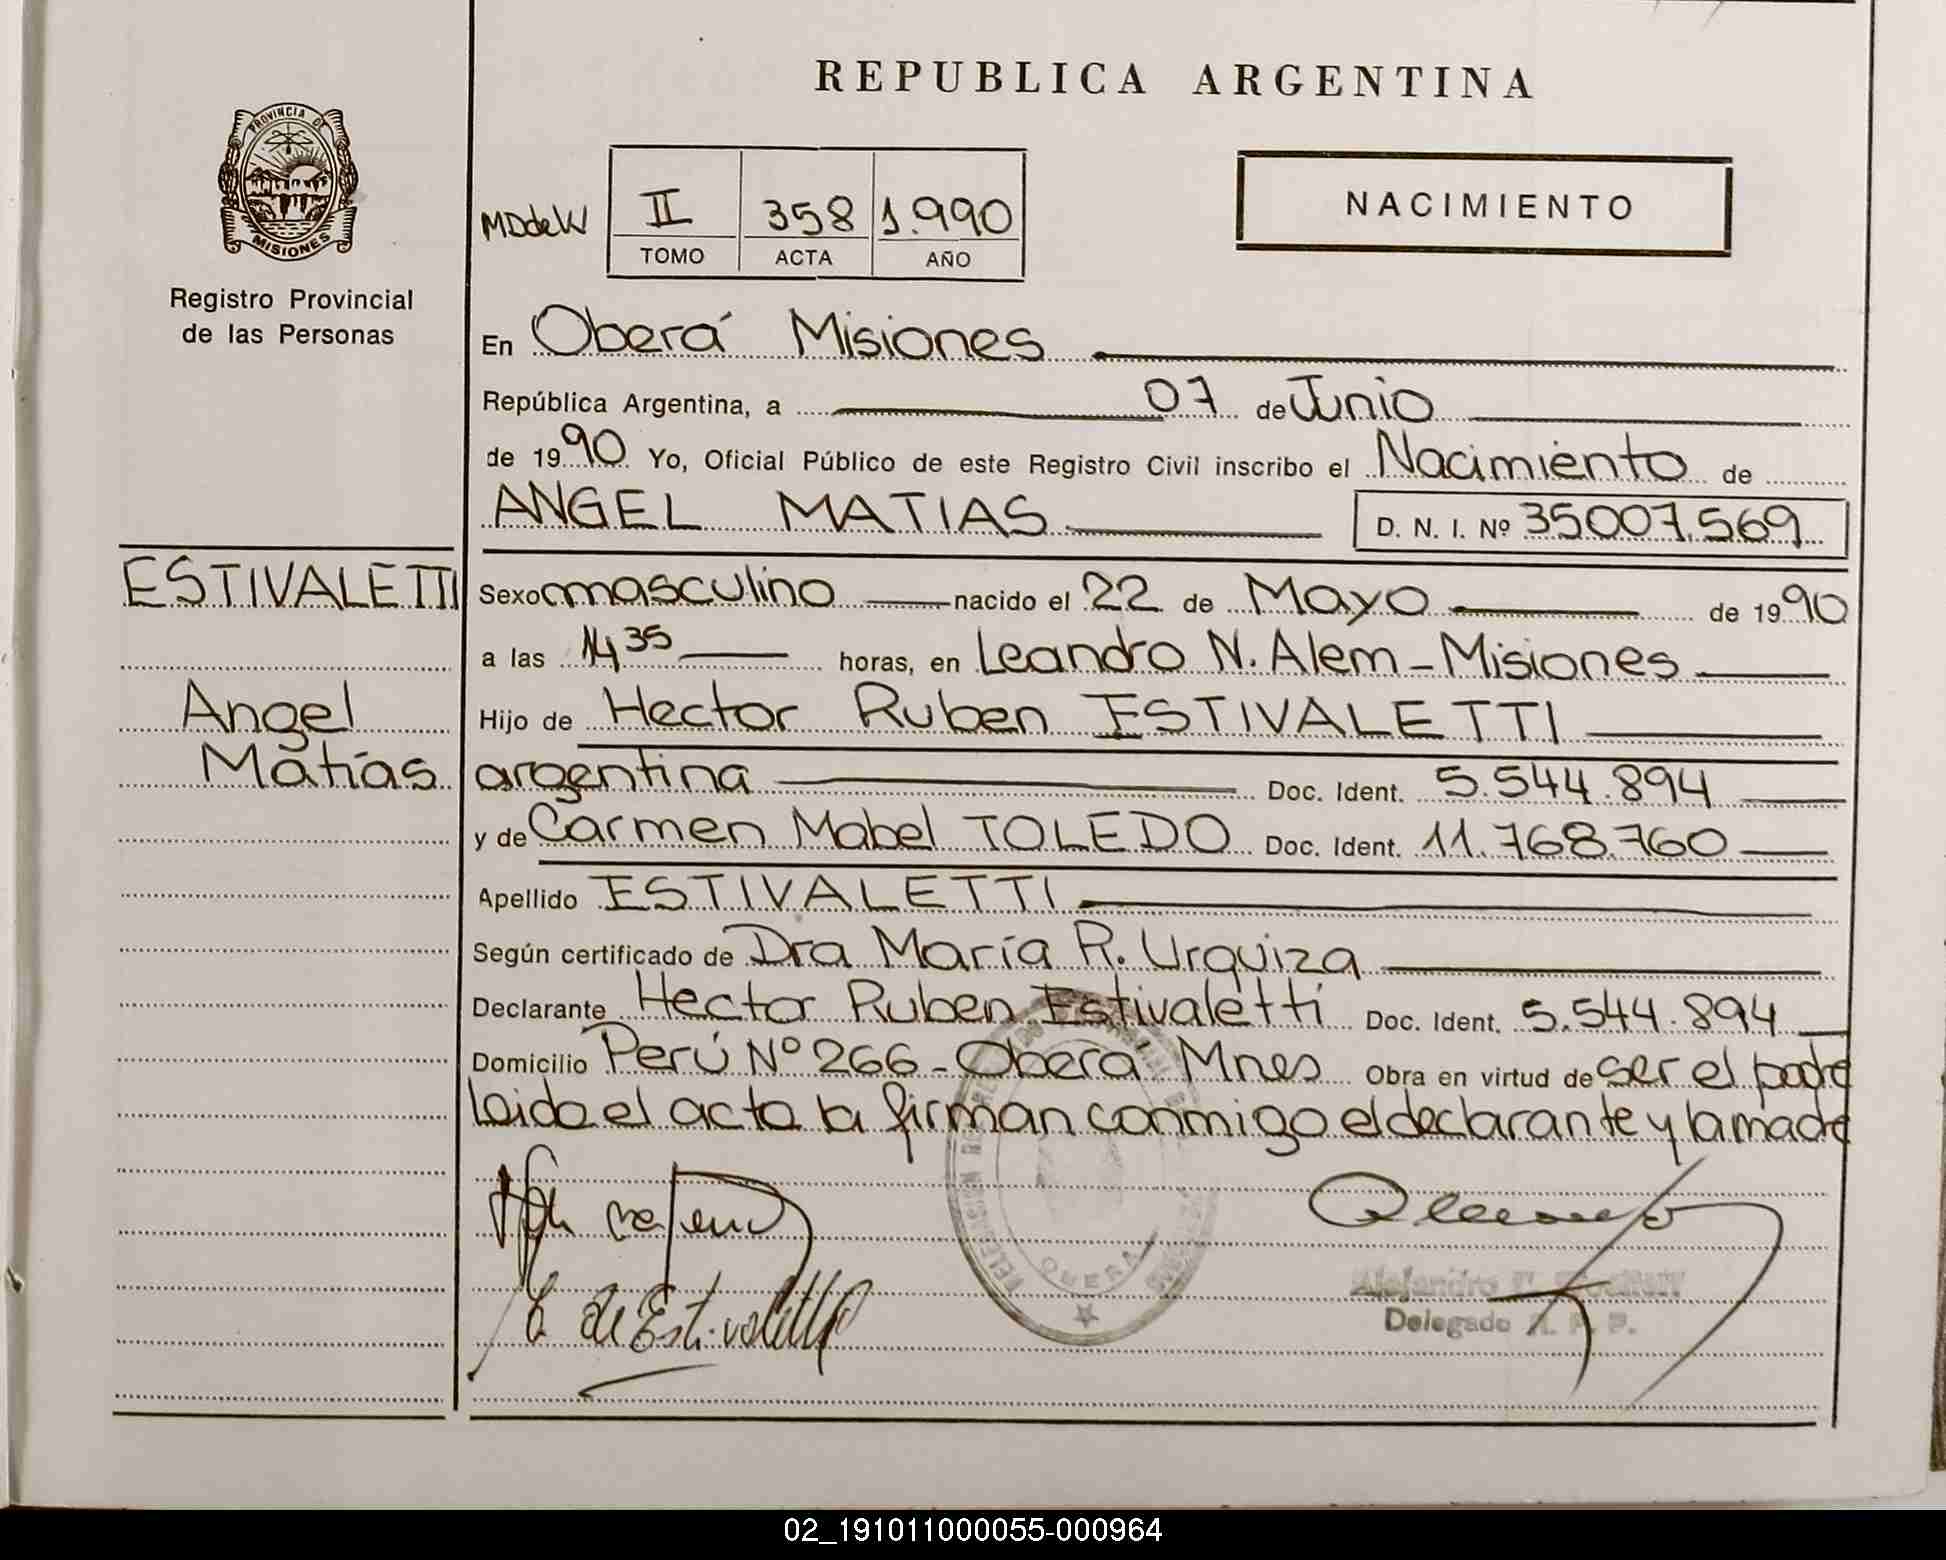 REPUBLICA ARGENTINA
PROVINCIA DE
MISIONES
Registro Provincial
de las Personas
MDdeW II 358 1.990
TOMO ACTA AÑO
NACIMIENTO
En Oberá Misiones
República Argentina, a 07 de Junio
de 1990 Yo, Oficial Público de este Registro Civil inscribo el Nacimiento de
ANGEL MATIAS D. N. I. Nº 35007.569
ESTIVALETTI
Angel
Matías
Sexo masculino nacido el 22 de Mayo de 1990
a las 14 35 horas, en Leandro N. Alem - Misiones
Hijo de Hector Ruben ESTIVALETTI
argentina Doc. Ident. 5.544.894
y de Carmen Mabel TOLEDO Doc. Ident. 11.768.760
Apellido ESTIVALETTI
Según certificado de Dra María R. Urquiza
Declarante Hector Ruben Estivaletti Doc. Ident. 5.544.894
Domicilio Perú Nº 266 - Oberá Mnes Obra en virtud de ser el padre
Leida el acta la firman conmigo el declarante y la madre
de Estivaletti
OBERA
Alejandro
Delegado R. P. P.
02_191011000055-000964